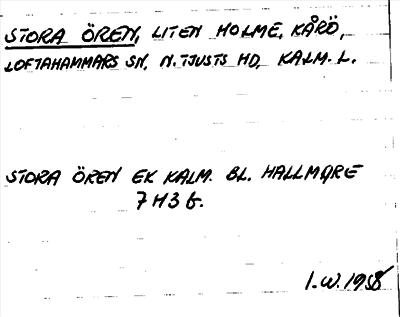 STORA ÖREN, LITEN HOLME, KÅRÖ,
LOFTAHAMMARS SN, N. TJUSTS HD, KALM. L.
STORA ÖREN EK KALM. BL. HALLMARE
7H3b.
I.W. 1958